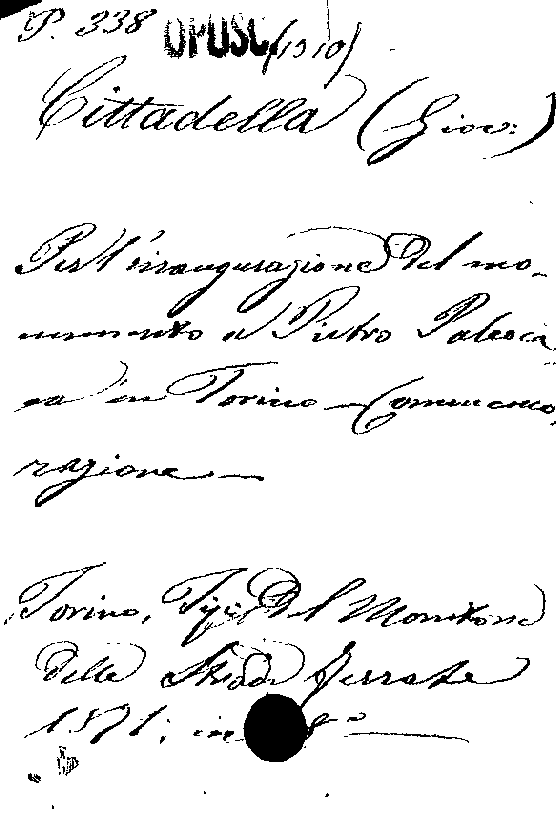 P. 338 OPUSC (1310)
Cittadella (Giov:)
Per l'inaugurazione Del mo-
numento a Pietro Paleoca
pa in Torino — Commemo,
razione —
Torino, Tip: Del Monitore
delle Strade ferrate
1871; in 8° —